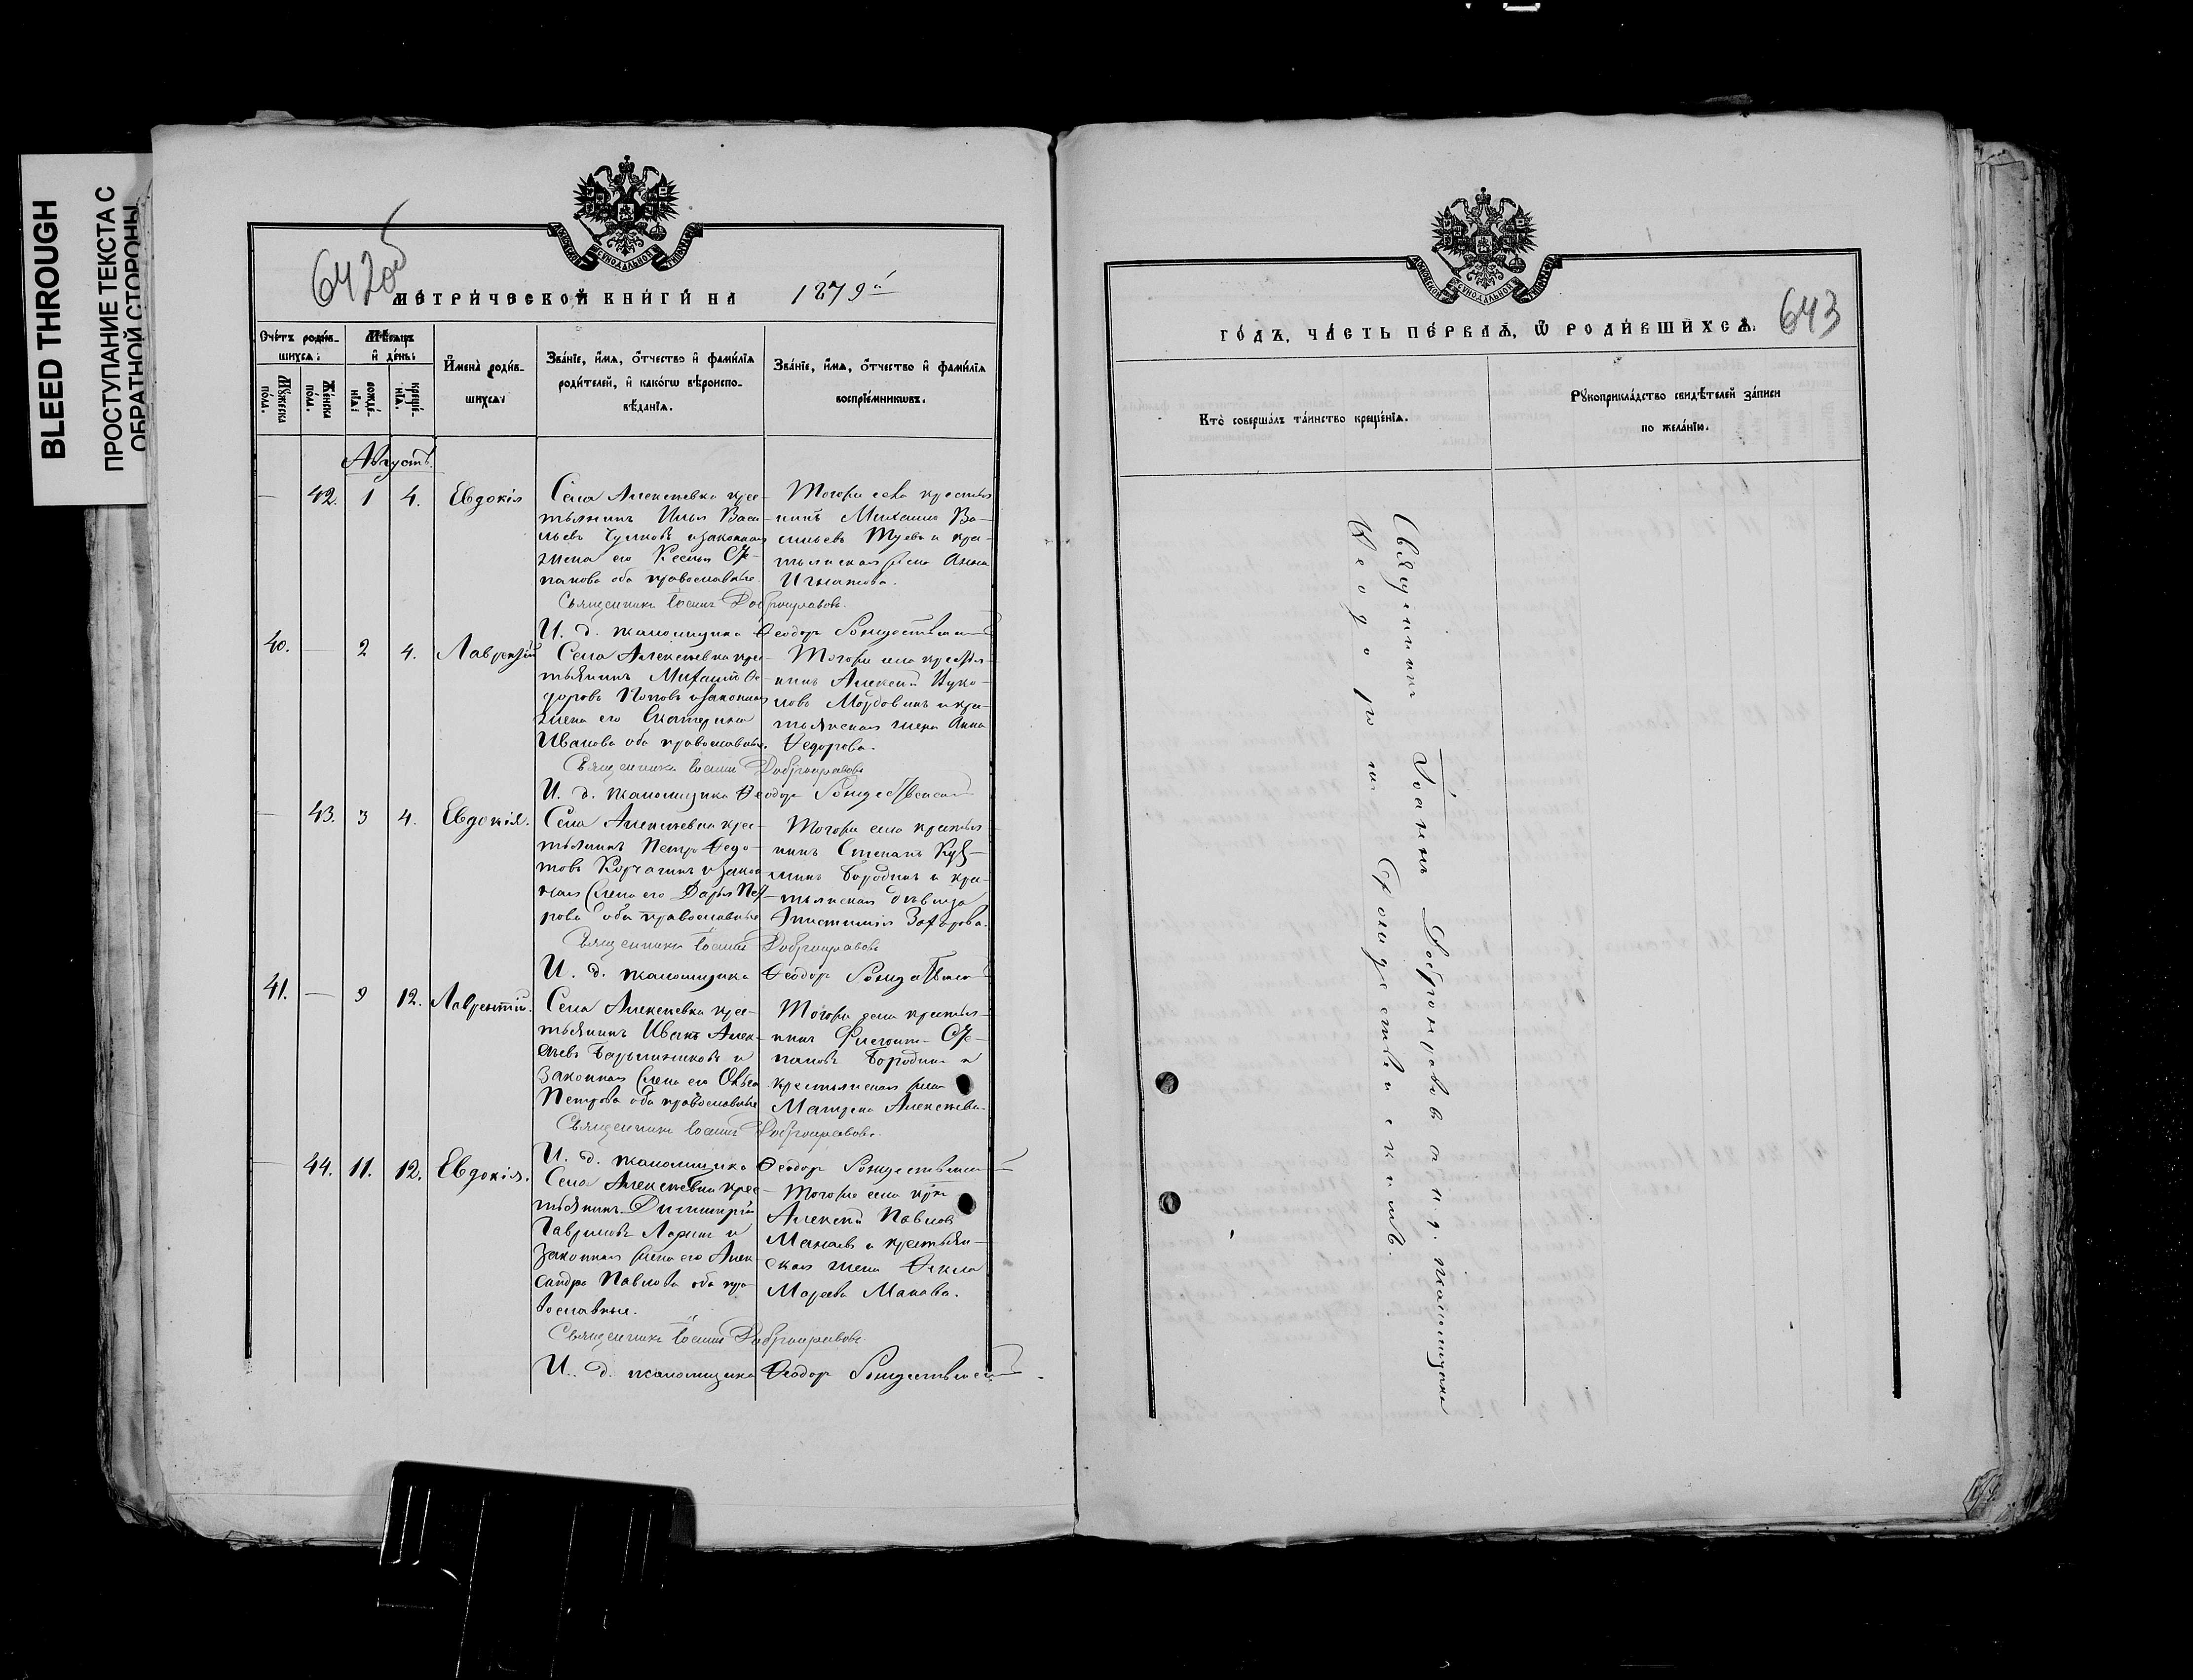 BLEED THROUGH
ПРОСТУПАНИЕ ТЕКСТА С
ОБРАТНОЙ СТОРОНЫ
642об
МЕТРИЧЕСКОЙ КНИГИ НА 1879й
Счетъ родив-
шихся:
Мужеска пола.
Женска пола.
Мѣсяцъ
и день:
рожде-
нія:
креще-
нія.
Имена родив-
шихся:
Званіе, имя, отчество и фамилія
родителей, и какогѡ вѣроиспо-
вѣданія.
Званіе, имя, отчество и фамилія
воспріемникѡвъ.
Августъ
— 42. 1 4. Евдокія
Села Алексѣевки крес-
тьянинъ Илья Васи-
льевъ и законная
жена его Ксенія Сте-
панова оба православные.
Тогоже села крестья-
нинъ Михаилъ Ва-
сильевъ и кре-
стьянская жена Анна
Игнатова.
Священникъ Іоаннъ Добронравовъ.
И. д. псаломщика Ѳеодоръ Рождественскій
40. — 2 4. Лаврентій
Села Алексѣевки крес-
тьянинъ Михаилъ Ѳе-
доровъ Поповъ и законная
жена его Екатерина
Иванова оба православные.
Тогоже села крестья-
нинъ Алексѣй Вуко-
ловъ Мордовинъ и кре-
стьянская жена Анна
Ѳедорова.
Священникъ Іоаннъ Добронравовъ
И. д. псаломщика Ѳеодоръ Рождественскій
— 43. 3 4. Евдокія.
Села Алексѣевки крес-
тьянинъ Петръ Ѳедо-
товъ Корчагинъ и закон-
ная жена его Дарья Пет-
рова оба православные
Тогоже села крестья-
нинъ Степанъ Кузь-
минъ Бородинъ и кре-
стьянская дѣвица
Апистимія Захарова.
Священникъ Іоаннъ Добронравовъ
И. д. псаломщика Ѳеодоръ Рождественскій
41. — 9 12. Лаврентій.
Села Алексѣевки крес-
тьянинъ Иванъ Алек-
сѣевъ и
законная жена его
Петрова оба православные
Тогоже села крестья-
нинъ Сте-
пановъ Бородинъ и
крестьянская жена
Матрена Алексѣева.
Священникъ Іоаннъ Добронравовъ.
И. д. псаломщика Ѳеодоръ Рождественскій
— 44. 11. 12. Евдокія.
Села Алексѣевки крес-
тьянинъ Димитрій
Гавриловъ Ларинъ и
законная жена его Алек-
сандра Павлова оба пра-
вославные.
Тогоже села
Алексѣй Павловъ
и крестьян-
ская жена Ѳекла
Священникъ Іоаннъ Добронравовъ.
И. д. псаломщика Ѳеодоръ Рождественскій
643
ГОДЪ, ЧАСТЬ ПЕРВАЯ, Ѡ РОДИВШИХСЯ.
Кто совершалъ таинство крещенія.
Рукоприкладство свидѣтелей записи
по желанію.
Священникъ Іоаннъ Добронравовъ съ и. д. псаломщика
Ѳеодоромъ Рождественскимъ.